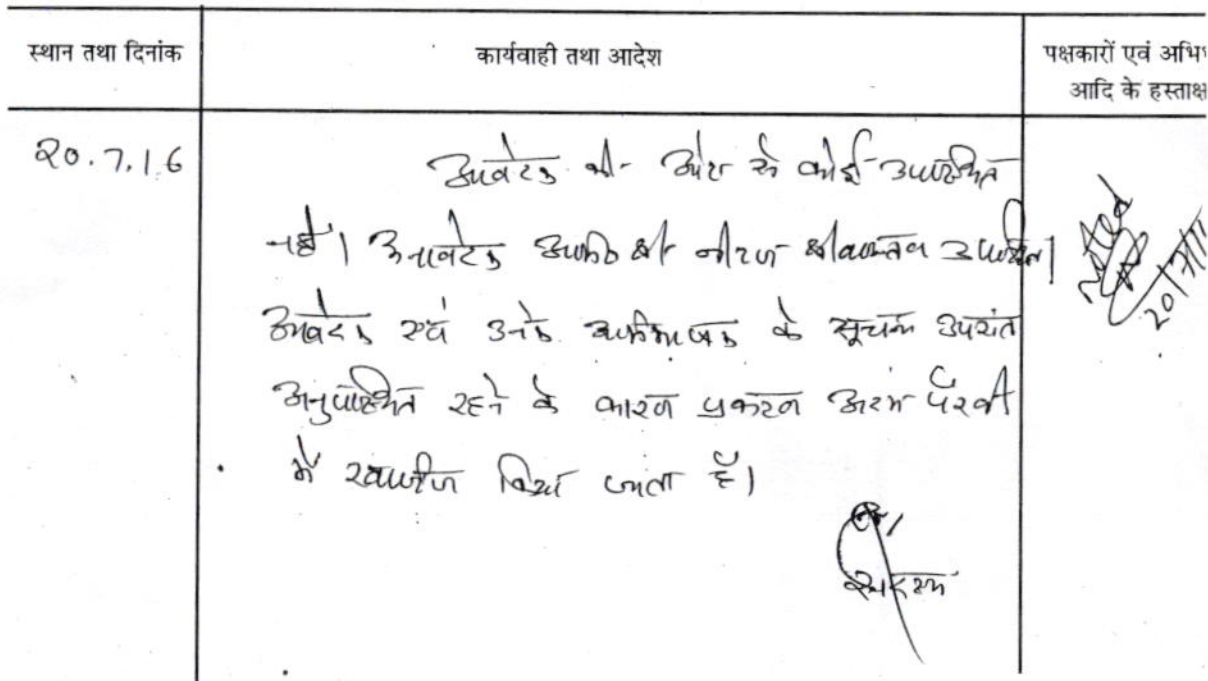 स्थान तथा दिनांक
कार्यवाही तथा आदेश
पक्षकारों एवं अभि
आदि के हस्ताक्ष
20.7.16
आवेदक की ओर से कोई उपस्थित
नहीं। अनावेदक अभि० श्री नीरज श्रीवास्तव उपस्थित।
आवेदक एवं उनके अभिभाषक के सूचना उपरांत
अनुपस्थित रहने के कारण प्रकरण अदम पैरवी
में खारीज किया जाता है।
सदस्य
Noted
20/7/16